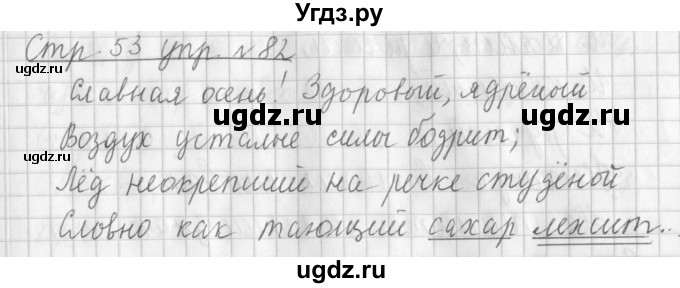 Угдз.ру
Стр 53 упр. №82
Славная осень! Здоровый, ядрёный
Воздух усталые силы бодрит;
Лёд неокрепший на речке студёной
Словно как тающий сахар лежит...
ugdz.ru
ugdz.ru
ugdz.ru
ugdz.ru
ugdz.ru
ugdz.ru
ugdz.ru
ugdz.ru
ugdz.ru